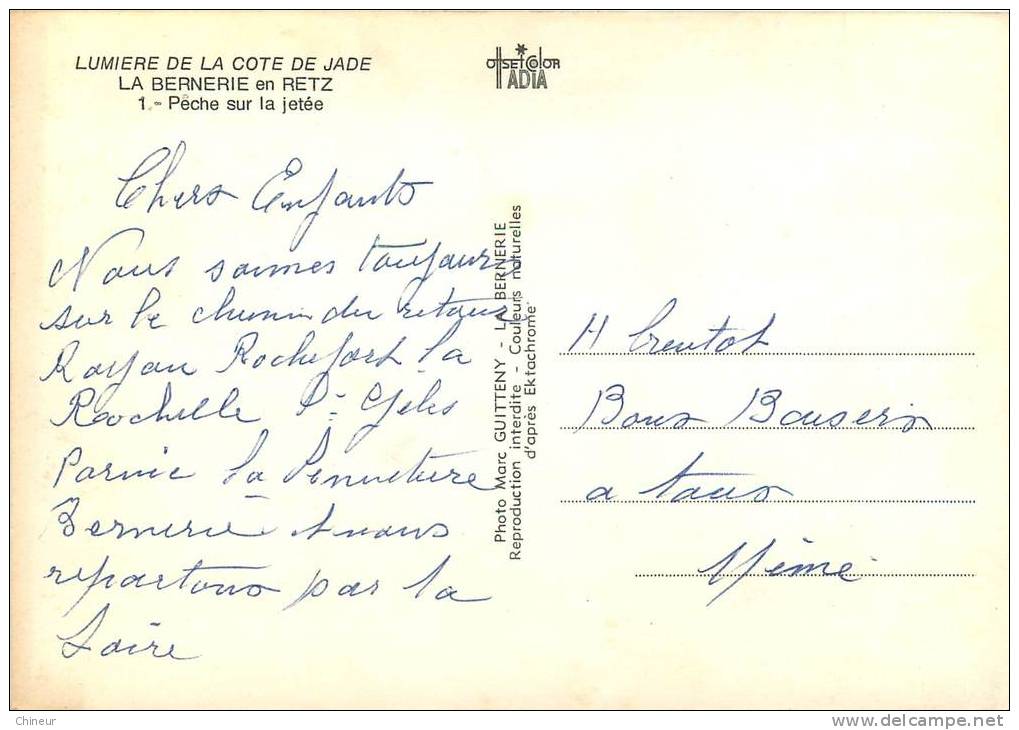 LUMIERE DE LA COTE DE JADE
LA BERNERIE en RETZ
1.- Pêche sur la jetée
OffSETCOlOR
ADIA
Chers Enfants
Nous sommes toujours
sur le chemin du retour
Royan Rochefort la
Rochelle St Gilles
Pornic la
Bernerie et nous
repartons par la
Loire
Photo Marc GUITTENY - LA BERNERIE
Reproduction interdite - Couleurs naturelles
d'après Ektachrome
A bientot
Bons Baisers
a tous
Mémé
Chineur
www.delcampe.net